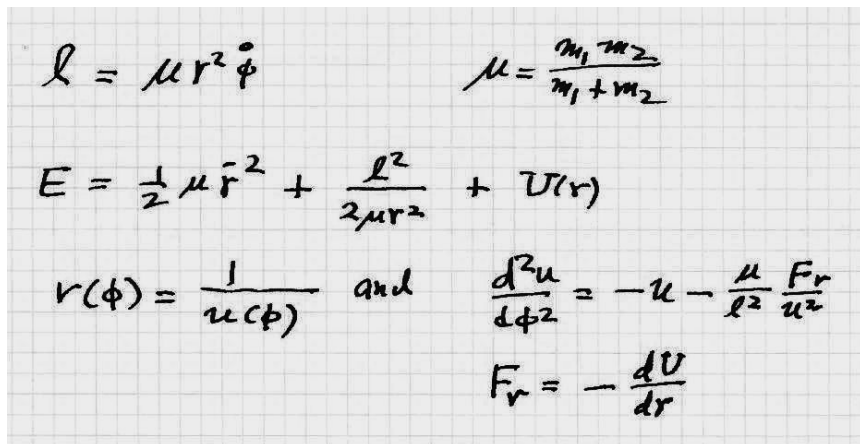 l = μr²φ̇ μ = m₁m₂/(m₁+m₂)
E = ½μṙ² + l²/(2μr²) + U(r)
r(φ) = 1/u(φ) and d²u/dφ² = −u − (μ/l²)(Fᵣ/u²)
Fᵣ = −dU/dr